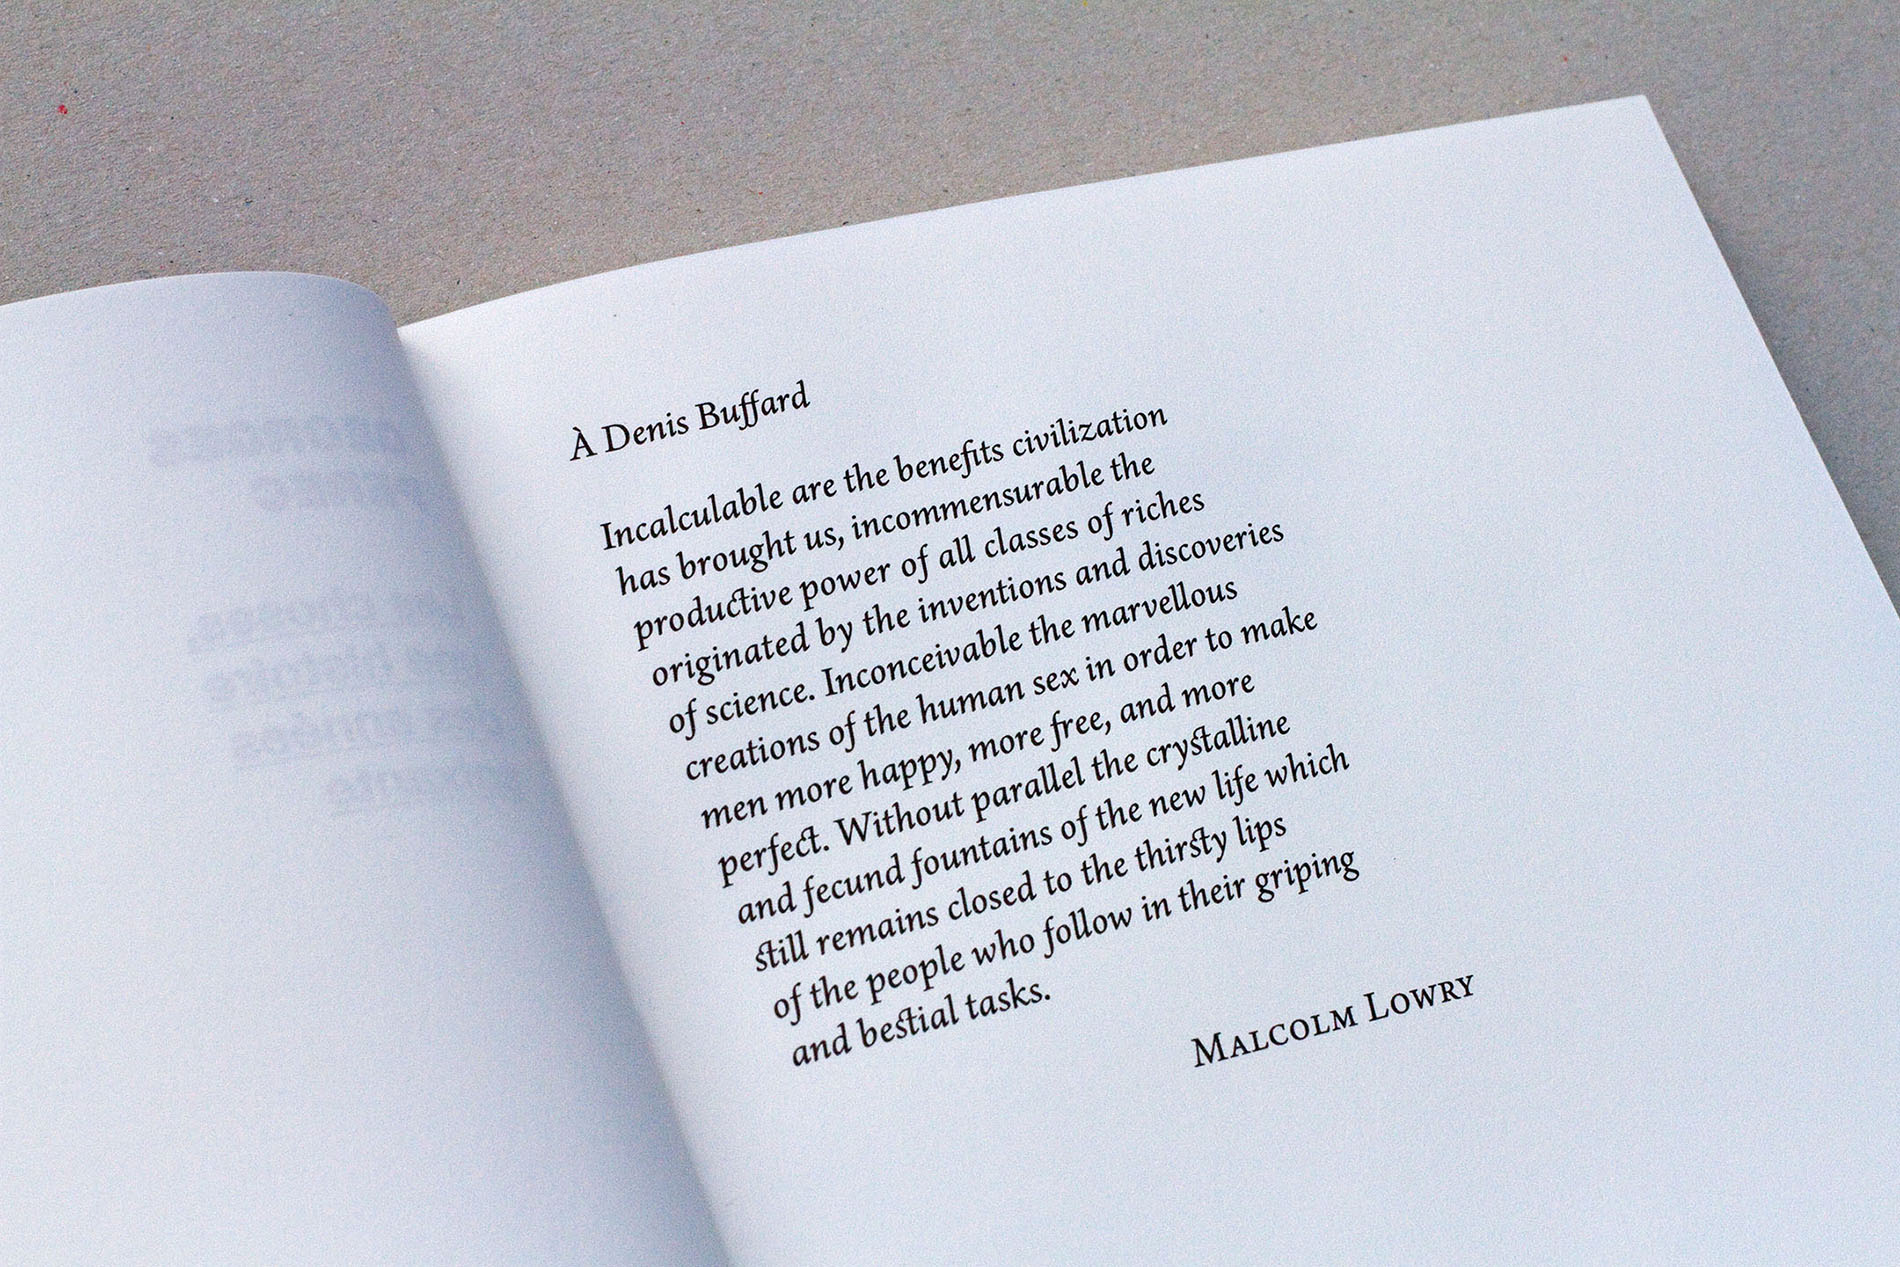 À Denis Buffard
Incalculable are the benefits civilization
has brought us, incommensurable the
productive power of all classes of riches
originated by the inventions and discoveries
of science. Inconceivable the marvellous
creations of the human sex in order to make
men more happy, more free, and more
perfect. Without parallel the crystalline
and fecund fountains of the new life which
still remains closed to the thirsty lips
of the people who follow in their griping
and bestial tasks.
MALCOLM LOWRY